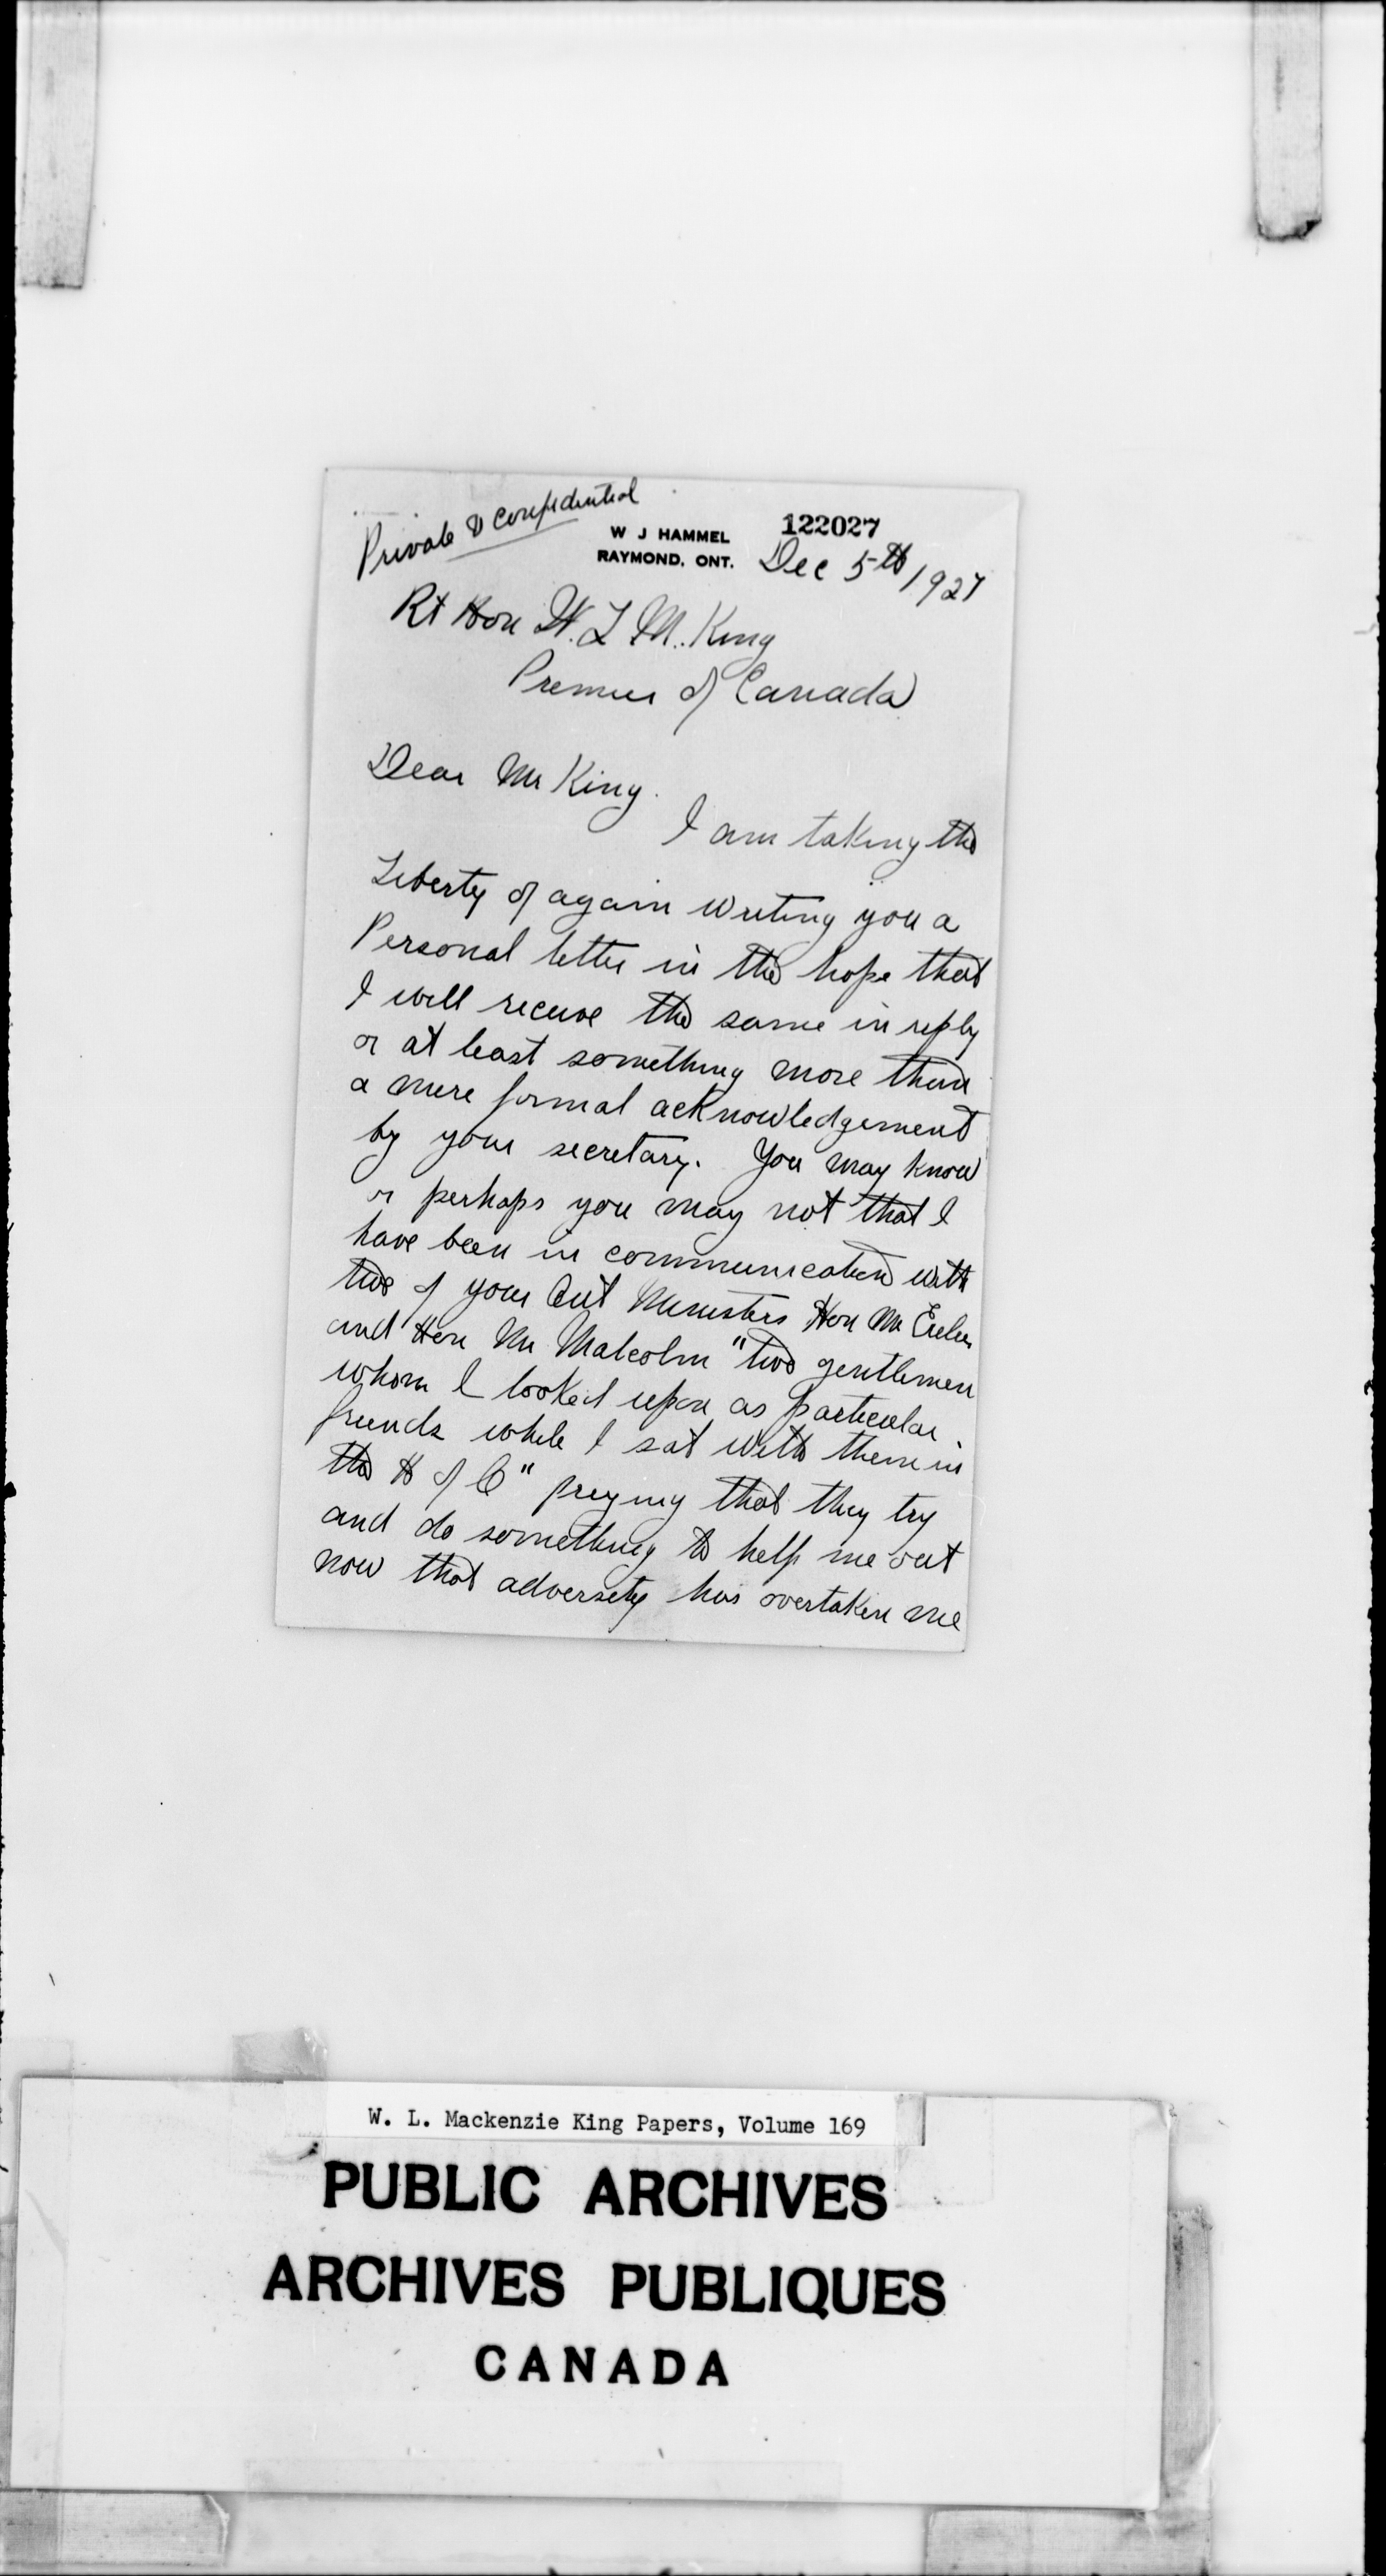 Private & Confidential
W J HAMMEL
RAYMOND. ONT.
122027
Dec 5th 1927
Rt Hon W. L M. King
Premier of Canada
Dear Mr King.
I am taking the
Liberty of again writing you a
Personal letter in the hope that
I will receive the same in reply
or at least something more than
a mere formal acknowledgement
by your secretary. You may know
or perhaps you may not that I
have been in communication with
two of your Ministers Hon Mr Euler
and Hon Mr Malcolm "two gentlemen
whom I looked upon as particular
friends while I sat with them in
the H of C" praying that they try
and do something to help me out
now that adversity has overtaken me
W. L. Mackenzie King Papers, Volume 169
PUBLIC ARCHIVES
ARCHIVES PUBLIQUES
CANADA